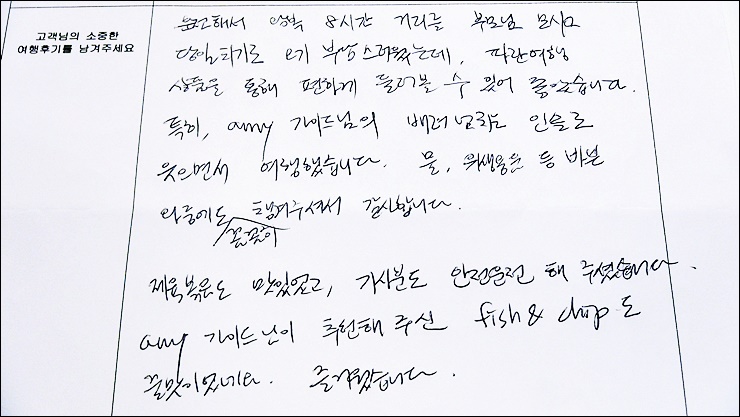 고객님의 소중한
여행후기를 남겨주세요
운전해서 왕복 8시간 거리를 부모님 모시고
당일치기로 오기 부담스러웠는데, 파란여행
상품을 통해 편하게 둘러볼 수 있어 좋았습니다.
특히, amy 가이드님의 배려 넘치는 인솔로
웃으면서 여행했습니다. 물, 위생용품 등 바쁜
와중에도 꼼꼼히 챙겨주셔서 감사합니다.
제육볶음도 맛있었고, 기사분도 안전운전 해 주셨습니다.
amy 가이드님이 추천해 주신 fish & chip도
꿀맛이었네요. 즐거웠습니다.